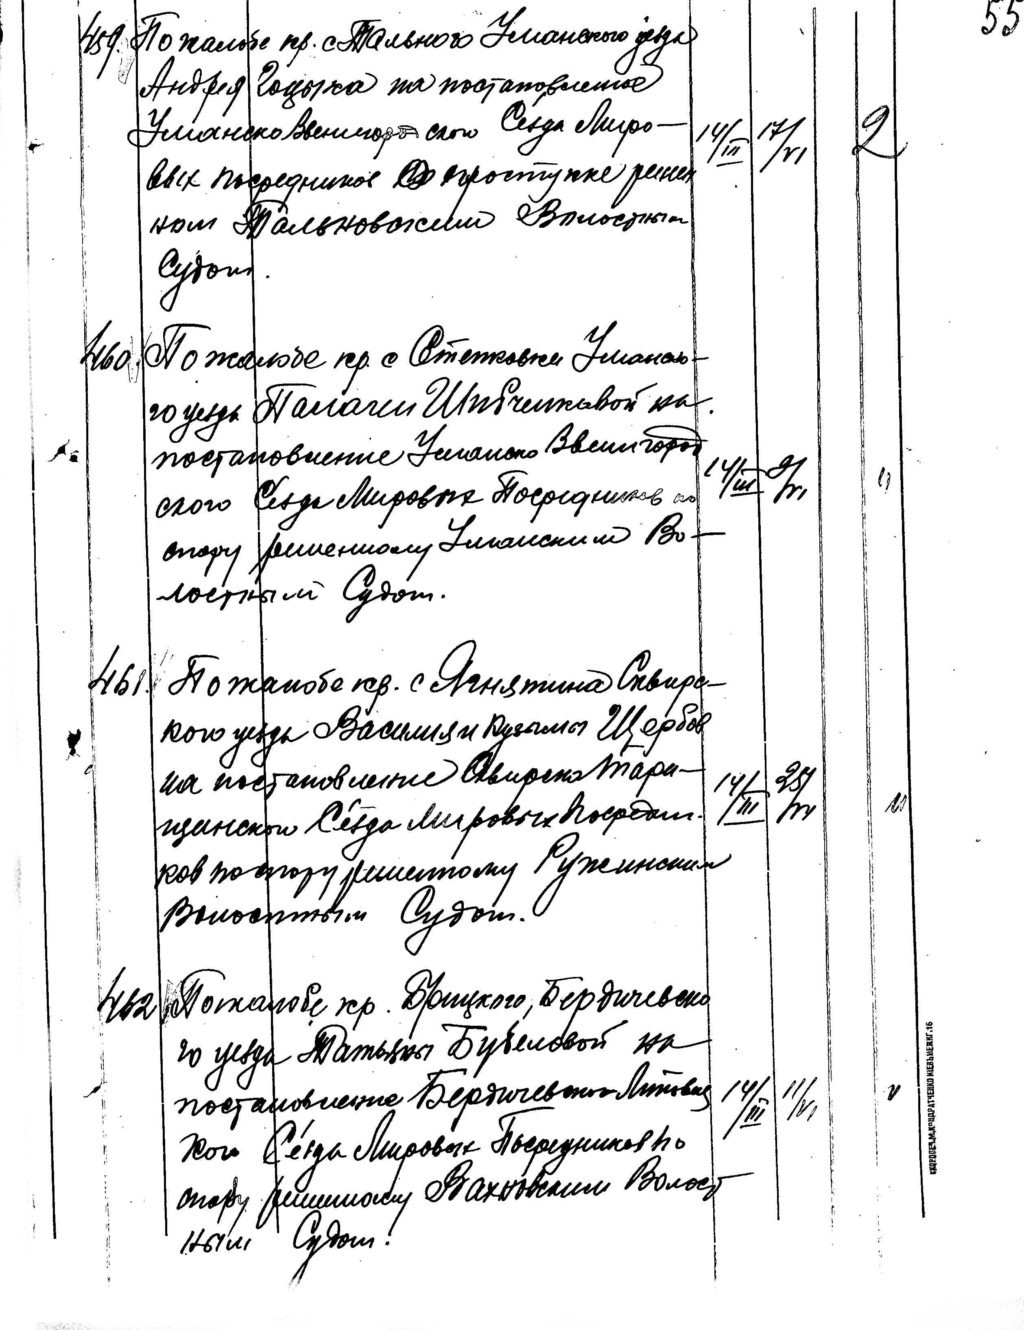 55
459. По жалобе кр. с Тального Уманского уезда
Андрея Годыка на постановление
Уманско Звенигородского Съезда Миро-
14/III 17/VI 2
вых Посредников о проступке решен
ном Тальновским Волостным
Судом.
460. По жалобе кр. с Степковки Уманско-
го уезда Палагеи на
постановление Уманско Звенигород
ского Съезда Мировых Посредников по
14/III 9/VI "
спору решенному Уманским Во-
лостным Судом.
461. По жалобе кр. с Ягнятина Сквирс-
кого уезда Василия и Кузьмы Щербов
на постановление Сквирско Тара-
14/III 25/VI
щанского Съезда Мировых Посредни-
ков по спору решенному Ружинским
Волостным Судом.
462 По жалобе кр. Бердичевско
го уезда Татьяны Бубеловой на
постановление Бердичевско Липовец
14/III 11/VI
кого Съезда Мировых Посредников по
спору решенному Вахновским Волост
ным Судом.